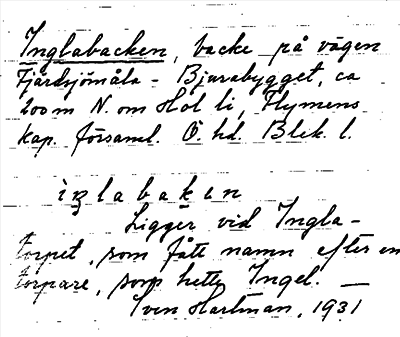 Inglabacken, backe på vägen
Fjärdsjömåla - Bjurabygget, ca
200 m N. om Hol li, Flymens
kap. församl. Ö. hd. Blek. l.
ìŋlabakɛn
Ligger vid Ingla-
torpet, som fått namn efter en
torpare, som hette Ingel. —
Sven Hartman, 1931